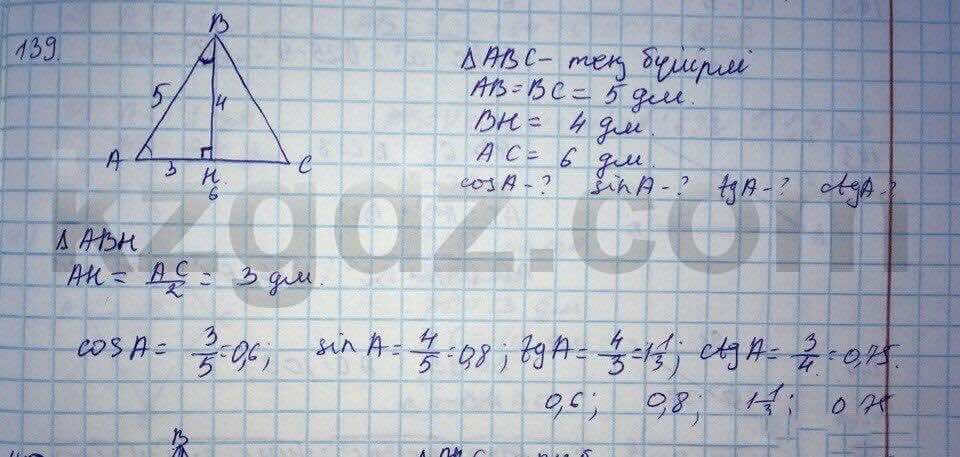 139.
B
5
4
A
3
H
C
6
ΔABC - тең бүйірлі
AB = BC = 5 дм.
BH = 4 дм.
AC = 6 дм.
cosA - ? sinA - ? tgA - ? ctgA - ?
kzgdz.com
ΔABH
AH = AC/2 = 3 дм.
cosA = 3/5 = 0,6; sinA = 4/5 = 0,8; tgA = 4/3 = 1 1/3; ctgA = 3/4 = 0,75.
0,6; 0,8; 1 1/3; 0 75
B